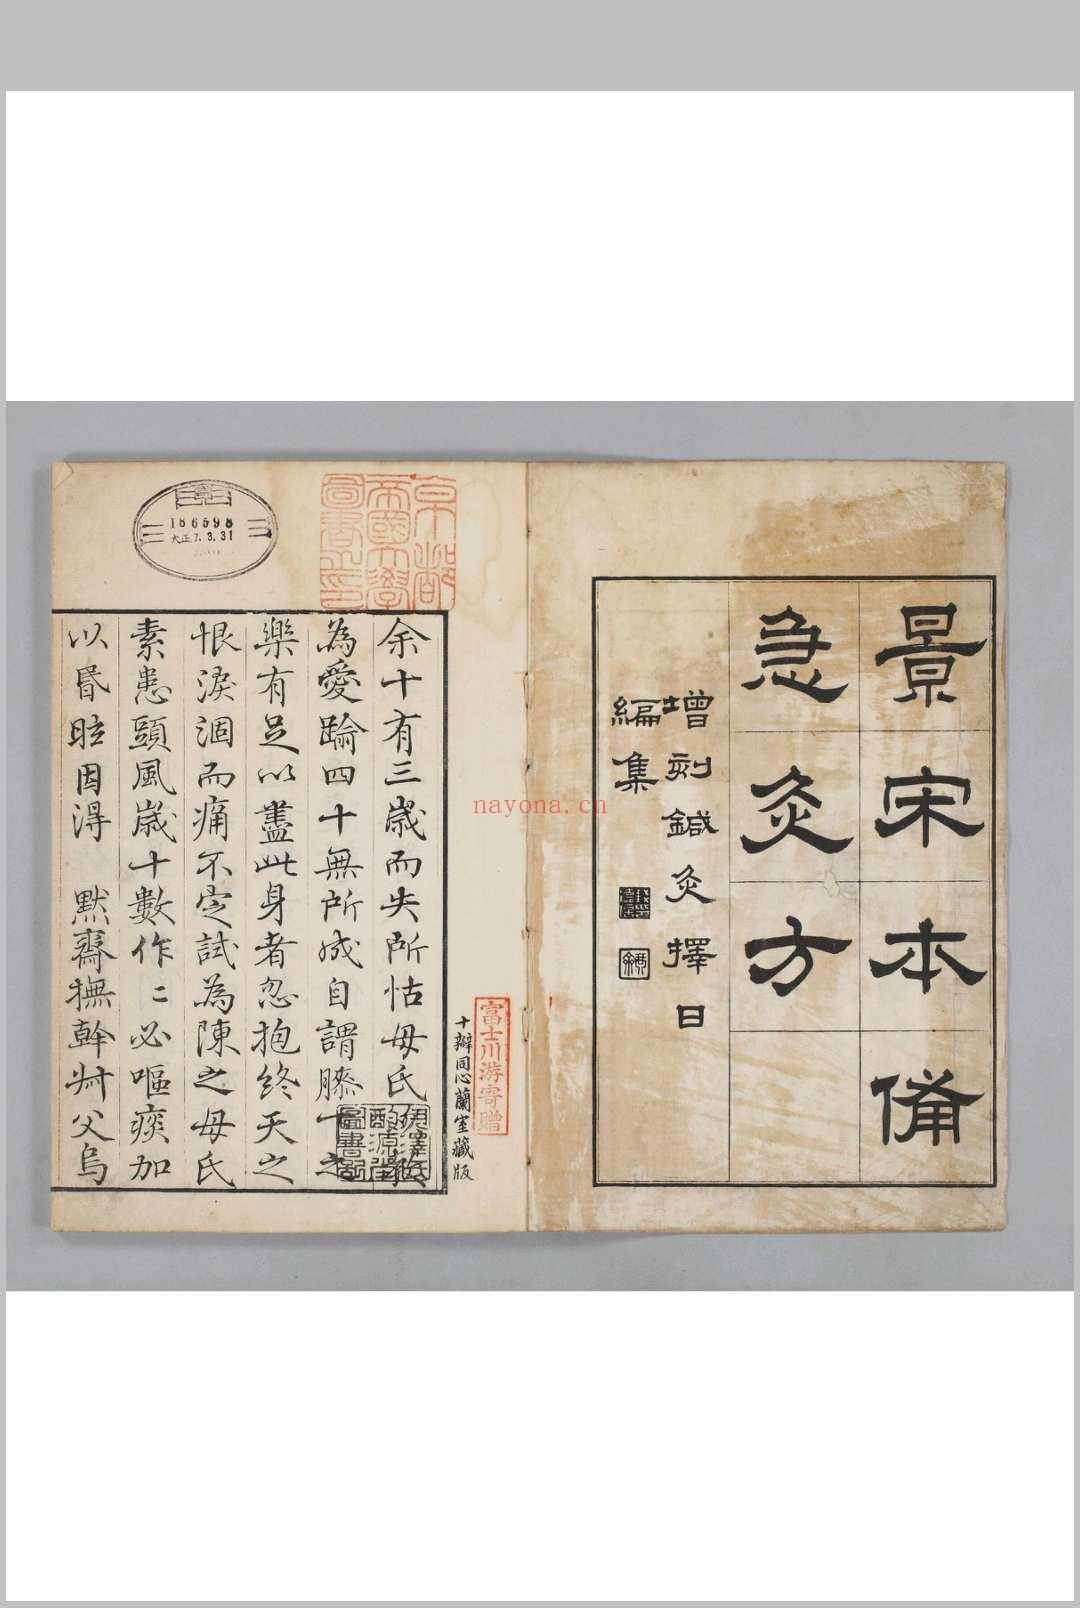 景宋本備
急灸方
增刻鍼灸擇日
編集
十瓣同心蘭室藏版
富士川游寄贈
京都
帝國大學
圖書之印
186598
大正7.3.31
余十有三歲而失所怙母氏
為愛踰四十無所成自謂膝下之
樂有足以盡此身者忽抱終天之
恨淚涸而痛不定試為陳之母氏
素患頭風歲十數作作必嘔痰加
以昏眩因得 默齋撫幹叔父烏
nayona.cn